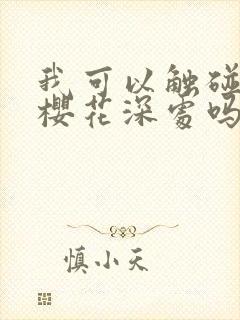 我可以触碰
樱花深处吗
慎小天